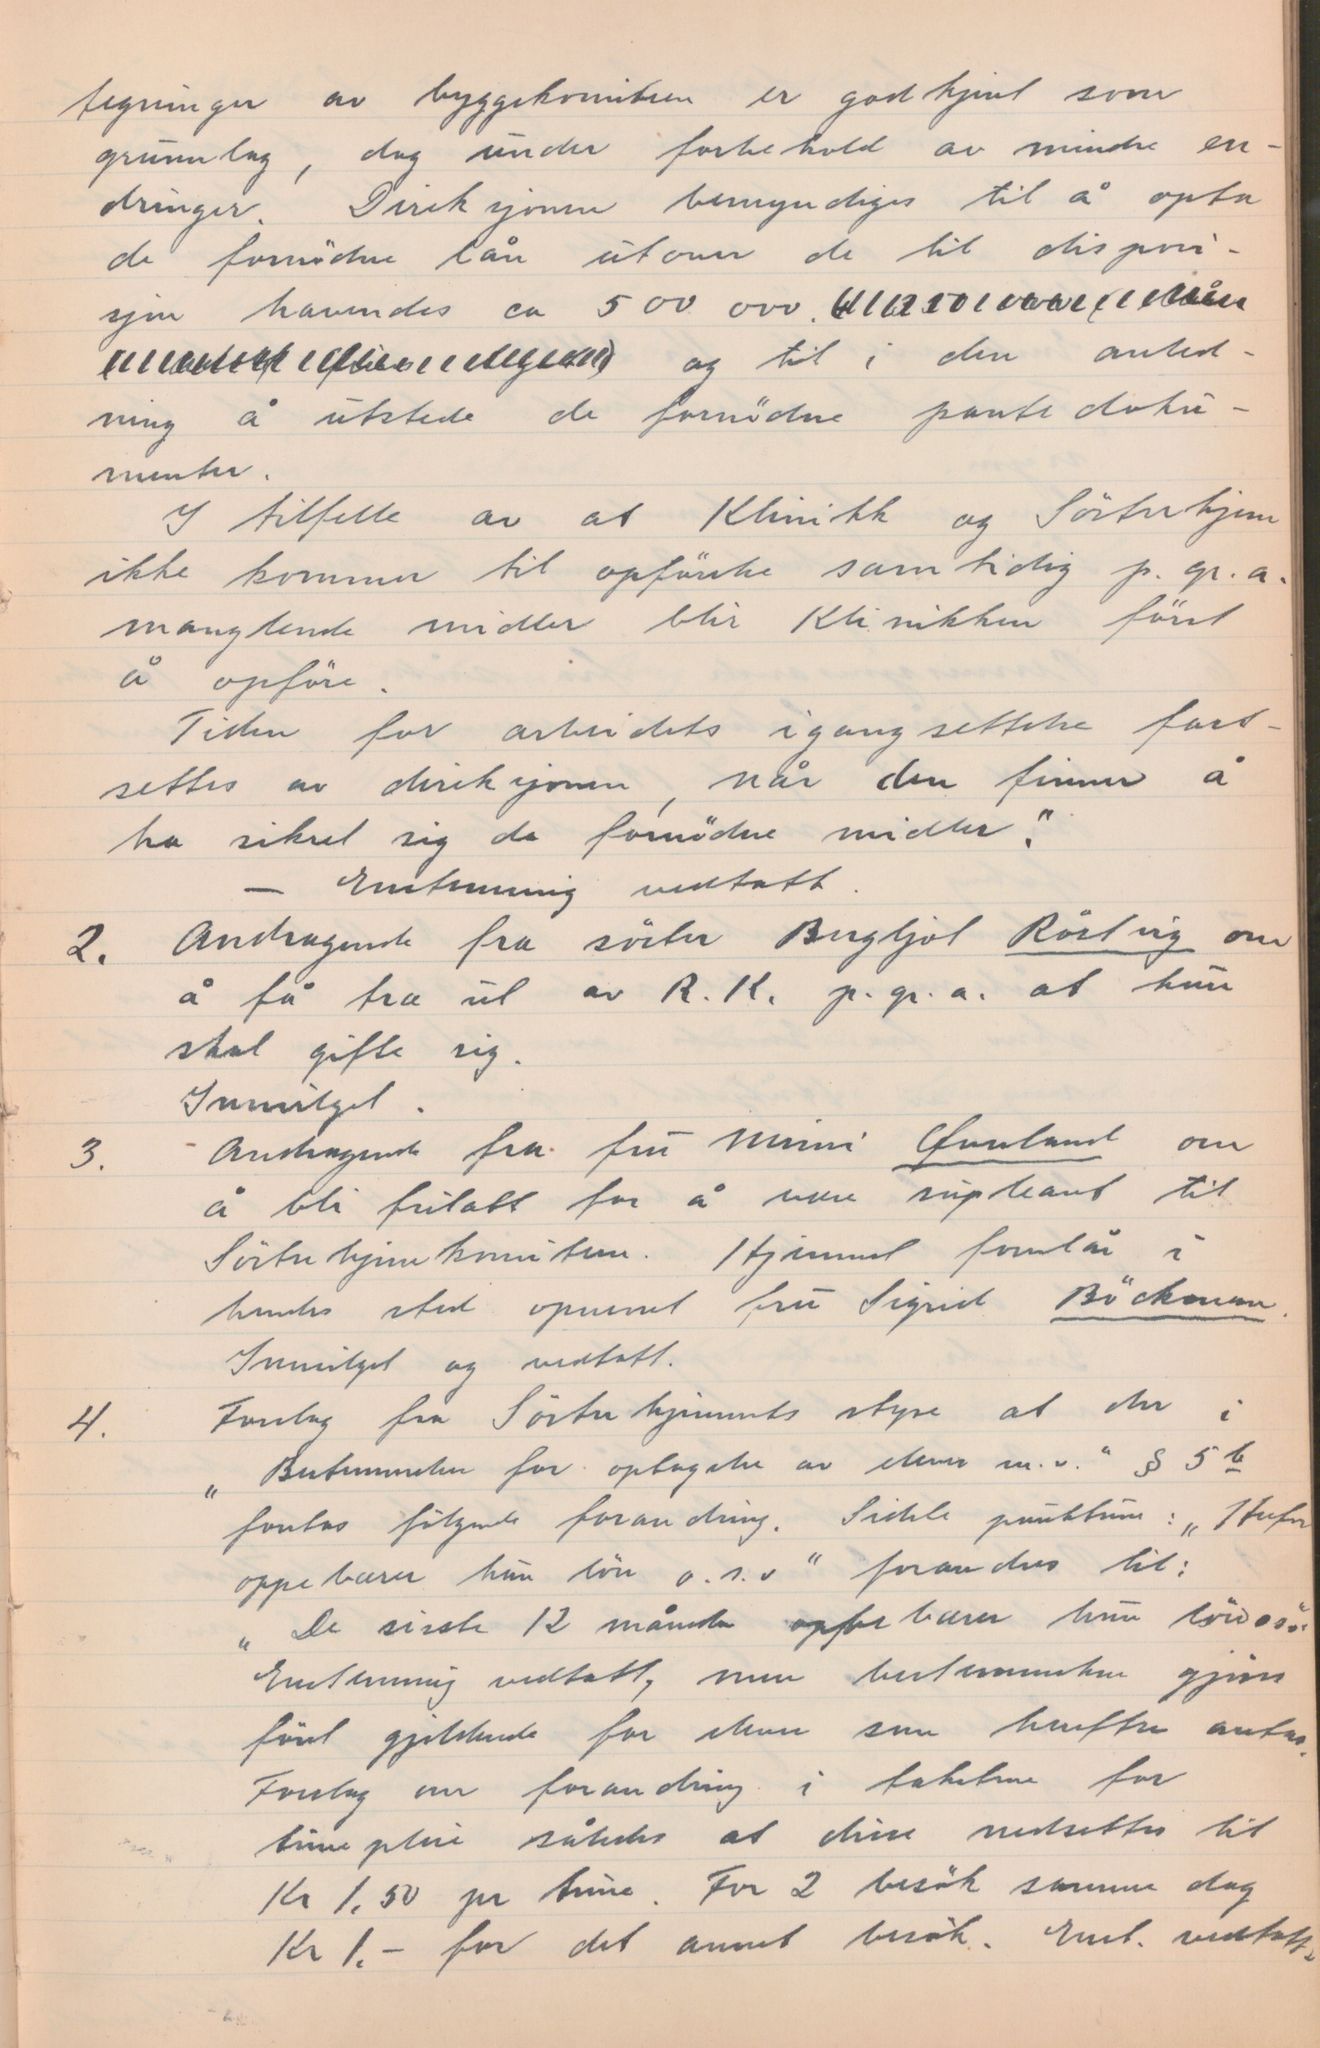 tegninger av byggekomiteen er godkjent som
grunnlag, dog under forbehold av mindre en-
dringer. Direksjonen bemyndiges til å opta
de fornödne lån utover de til disposi-
sjon havendes ca 500 000.
og til i den anled-
ning å utstede de fornödne pantedoku-
menter.
I tilfelle av at Klinikk og Sösterhjem
ikke kommer til opförelse samtidig p. gr. a.
manglende midler blir Klinikken först
å opföre.
Tiden for arbeidets igangsettelse fast-
settes av direksjonen, når den finner å
ha sikret sig de fornödne midler."
- Enstemmig vedtatt.
2. Andragende fra söster Bergljot Röstvig om
å få tre ut av R.K. p. gr. a. at hun
skal gifte sig.
Innvilget.
3. Andragende fra fru Mimi om
å bli fritatt for å være supleant til
Sösterhjemkomiteen. Hjemmet foreslår i
hendes sted opnevnt fru Sigrid Böckman.
Innvilget og vedtatt.
4. Forslag fra Sösterhjemmets styre at der i
„Bestemmelser for optagelse av elever m.v." § 5 b
foretas fölgende forandring. Sidste punktum: „Herfor
oppebærer hun lön o.s.v" forandres til:
„De siste 12 måneder oppebærer hun lön o.s.v."
Enstemmig vedtatt, men bestemmelsen gjöres
först gjeldende for elever som herefter antas.
Forslag om forandring i takstene for
timepleie således at disse nedsettes til
Kr 1.50 pr time. For 2 besök samme dag
Kr 1.- for det annet besök. Enst. vedtatt.